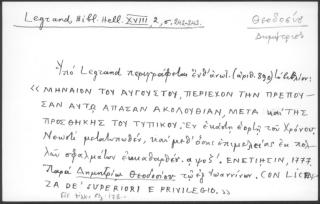 Legrand, Bibl. Hell. XVIII, 2, σ. 242-243.
Θεοδοσίου
Δημήτριος
Ὑπὸ Legrand περιγράφεται ἐνθ' ἀνωτ. (ἀριθ. 890) τὸ βιβλίον:
« ΜΗΝΑΙΟΝ ΤΟΥ ΑΥΓΟΥΣΤΟΥ, ΠΕΡΙΕΧΟΝ ΤΗΝ ΠΡΕΠΟΥ-
ΣΑΝ ΑΥΤΩ ΑΠΑΣΑΝ ΑΚΟΛΟΥΘΙΑΝ, ΜΕΤΑ καὶ ΤΗΣ
ΠΡΟΣΘΗΚΗΣ ΤΟΥ ΤΥΠΙΚΟΥ. Ἐν ἑκάστῃ ἑορτῇ τοῦ Χρόνου,
Νεωστὶ μετατυπωθὲν, καὶ μεθ' ὅσης ἐπιμελείας ἐκ πολ-
λῶν σφαλμάτων ἐκκαθαρθέν. ͵αψοζ΄. ΕΝΕΤΙΗΣΙΝ, 1777.
Παρὰ Δημητρίῳ Θεοδοσίου τῷ ἐξ Ἰωαννίνων. CON LICEN-
ZA DE' SUPERIORI E PRIVILEGIO. »